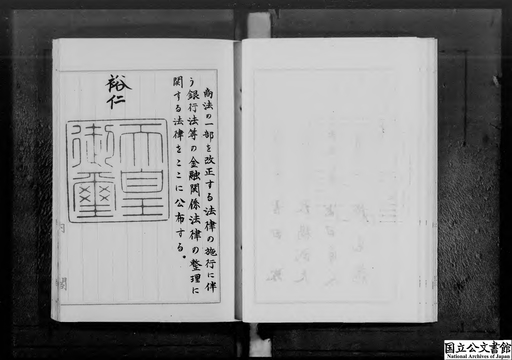 商法の一部を改正する法律の施行に伴
う銀行法等の金融関係法律の整理に
関する法律をここに公布する。
裕仁
天皇
御璽
内閣
国立公文書館
National Archives of Japan